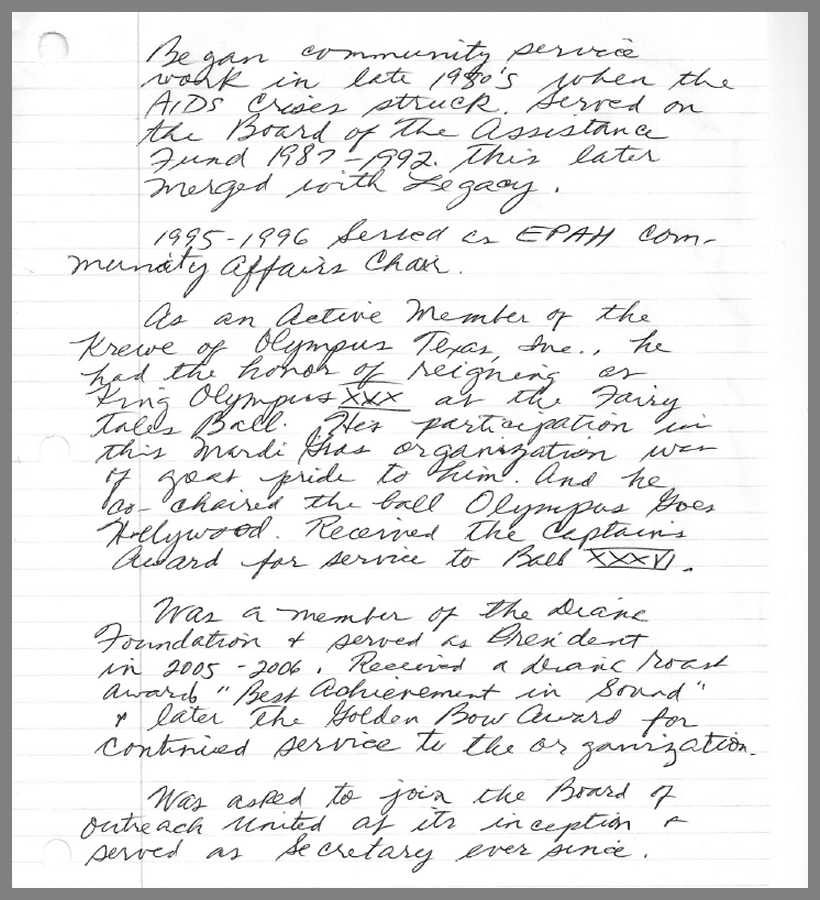 Began community service
work in late 1980's when the
AIDS Crises struck. Served on
the Board of the Assistance
Fund 1987-1992. This later
merged with Legacy.
1995-1996 Served as EPAH Com-
munity Affairs Chair.
As an Active Member of the
Krewe of Olympus Texas, Inc., he
had the honor of reigning as
King Olympus XXX at the Fairy
tales Ball. His participation in
this Mardi Gras organization was
of great pride to him. And he
co-chaired the ball Olympus Goes
Hollywood. Received the Captains
Award for service to Ball XXXVI.
Was a member of the Diane
Foundation & served as President
in 2005-2006. Received a Diane roast
award "Best Achievement in Sound"
& later The Golden Bow Award for
continued service to the organization.
Was asked to join the Board of
Outreach United at its inception &
served as Secretary ever since.